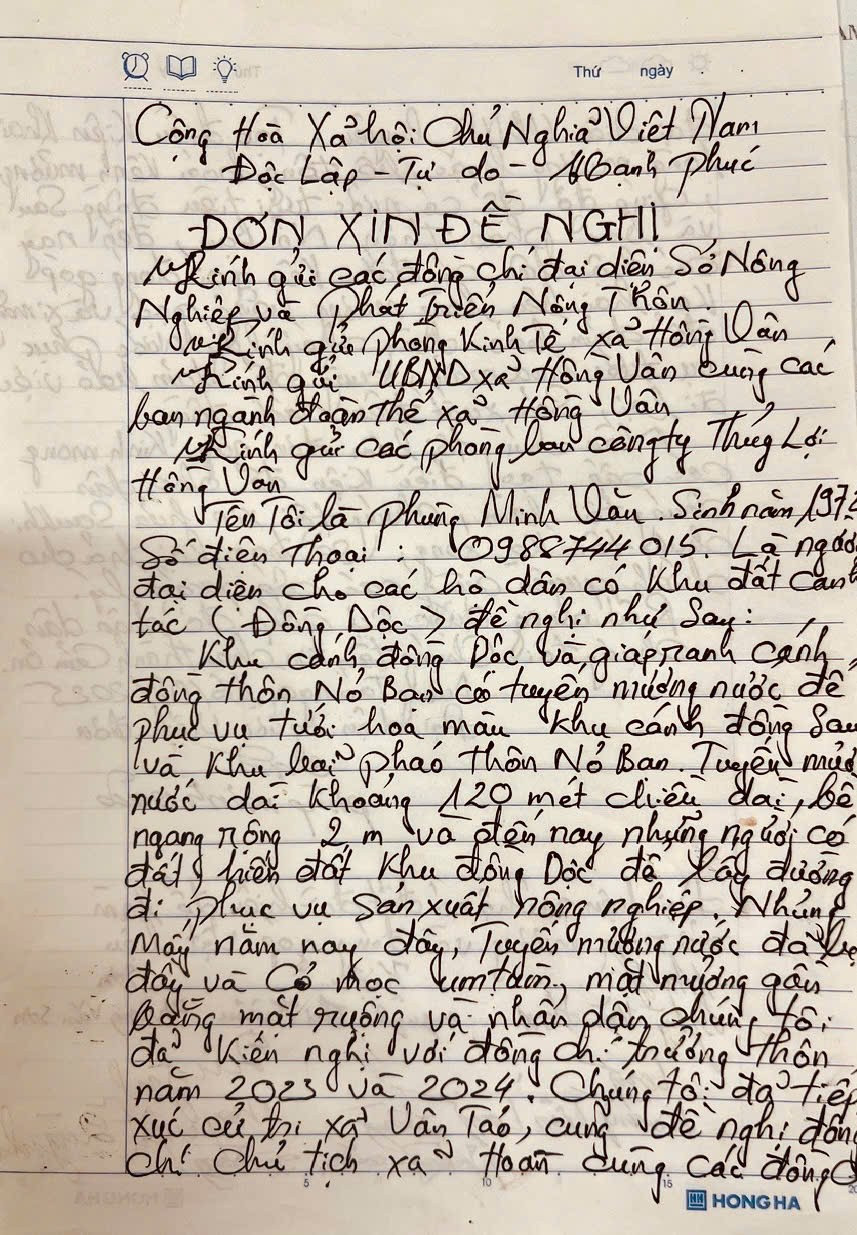 Thứ ngày
Cộng Hoà Xã hội Chủ Nghĩa Việt Nam
Độc Lập - Tự do - Hạnh Phúc
ĐƠN XIN ĐỀ NGHỊ
Kính gửi các đồng chí đại diện Sở Nông
Nghiệp và Phát Triển Nông Thôn.
Kính gửi phòng Kinh Tế xã Hồng Vân
Kính gửi UBND xã Hồng Vân cùng các
ban ngành đoàn thể xã Hồng Vân
Kính gửi các phòng ban công ty Thủy Lợi
Hồng Vân
Tên Tôi là Phùng Minh Văn. Sinh năm
Số điện Thoại: 0988744015. Là người
đại diện cho các hộ dân có khu đất canh
tác (Đồng Dộc) đề nghị như sau:
Khu cánh đồng Dộc và giáp ranh cánh
đồng thôn Nỏ Bạn có tuyến mương nước để
phục vụ tưới hoa màu khu cánh đồng Sau
và khu bãi pháo thôn Nỏ Bạn. Tuyến mươ
nước dài khoảng 120 mét chiều dài, bề
ngang rộng 2 m và đến nay những người có
đất hiến đất khu đồng Dộc để xây đường
đi phục vụ Sản xuất nông nghiệp. Nhưng
Mấy năm nay đây, Tuyến mương nước đã bị
đầy và cỏ mọc um tùm, mặt mương gần
bằng mặt ruộng và nhân dân chúng tôi
đã kiến nghị với đồng chí trưởng thôn
năm 2023 và 2024. Chúng tôi đã tiếp
xúc cử tri xã Vân Tảo, cũng đề nghị đồng
chí chủ tịch xã Hoàn cùng các đồng c
5 10 15 20
HONG HA